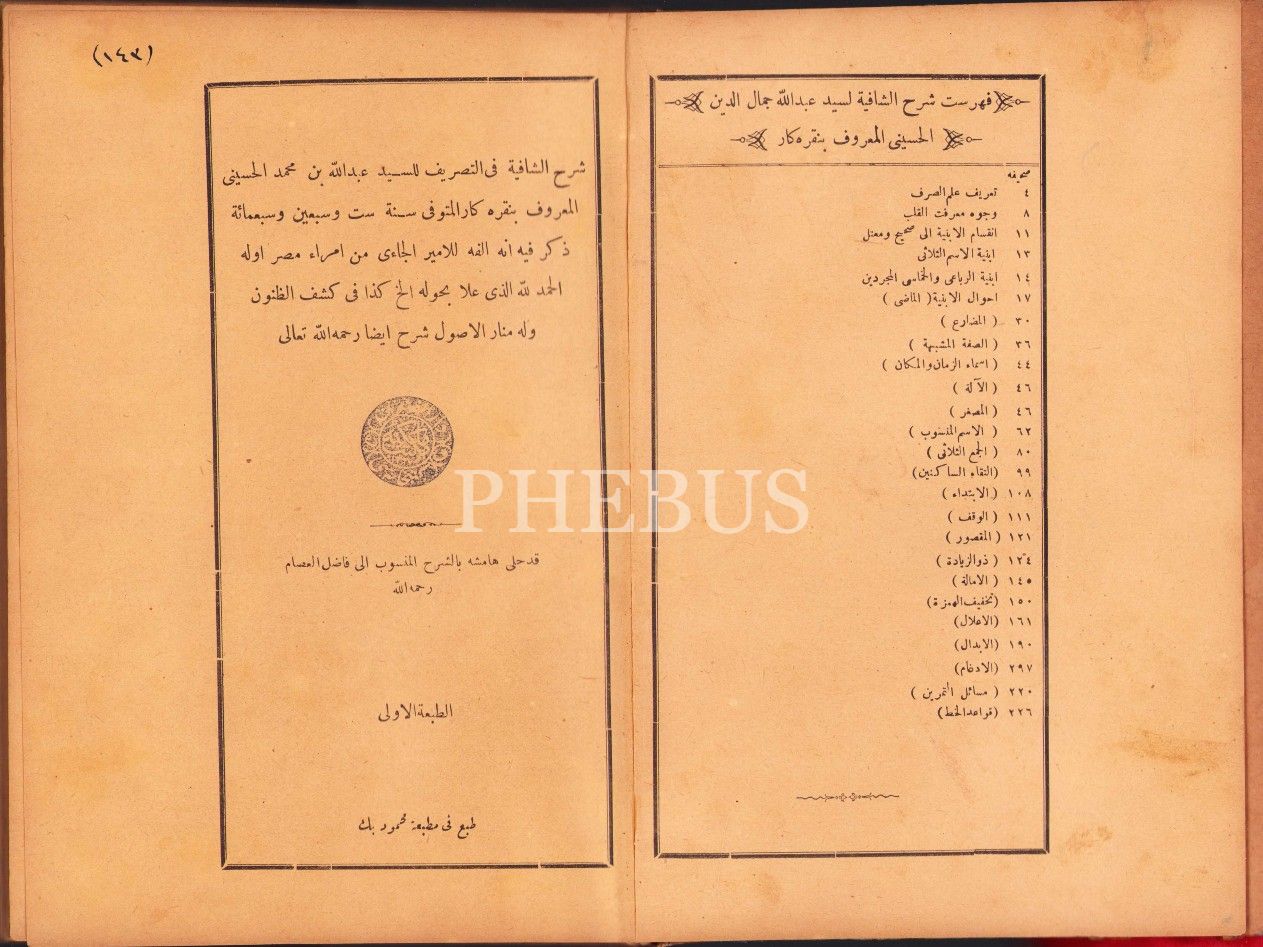 فهرست شرح الشافية لسيد عبدالله جمال الدين
الحسينى المعروف بنقره كار
صحيفه
٤ تعريف علم الصرف
٨ وجوه معرفت القلب
١١ انقسام الابنية الى صحيح ومعتل
١٣ ابنية الاسم الثلاثى
١٤ ابنية الرباعى والخماسى المجردين
١٧ احوال الابنية ( الماضى )
٣٠ ( المضارع )
٣٦ ( الصفة المشبهة )
٤٤ ( اسماء الزمان والمكان )
٤٦ ( الآلة )
٤٦ ( المصغر )
٦٢ ( الاسم المنسوب )
٨٠ ( الجمع الثلاثى )
٩٩ (التقاء الساكنين)
١٠٨ ( الابتداء )
١١١ ( الوقف )
١٢١ ( المقصور )
١٢٤ ( ذو الزيادة )
١٤٥ ( الامالة )
١٥٠ (تخفيف الهمزة)
١٦١ (الاعلال)
١٩٠ (الابدال)
٢٩٧ (الادغام)
٢٢٠ ( مسائل التمرين )
٢٢٦ (قواعد الخط)
(١٤٣)
شرح الشافية فى التصريف للسيد عبدالله بن محمد الحسينى
المعروف بنقره كار المتوفى سنة ست وسبعين وسبعمائة
ذكر فيه انه الفه للامير الجاءى من امراء مصر اوله
الحمد لله الذى علا بحوله الخ كذا فى كشف الظنون
وله منار الاصول شرح ايضا رحمه الله تعالى
قد حلى هامشه بالشرح المنسوب الى فاضل العصام
رحمه الله
الطبعة الاولى
طبع فى مطبعة محمود بك
PHEBUS